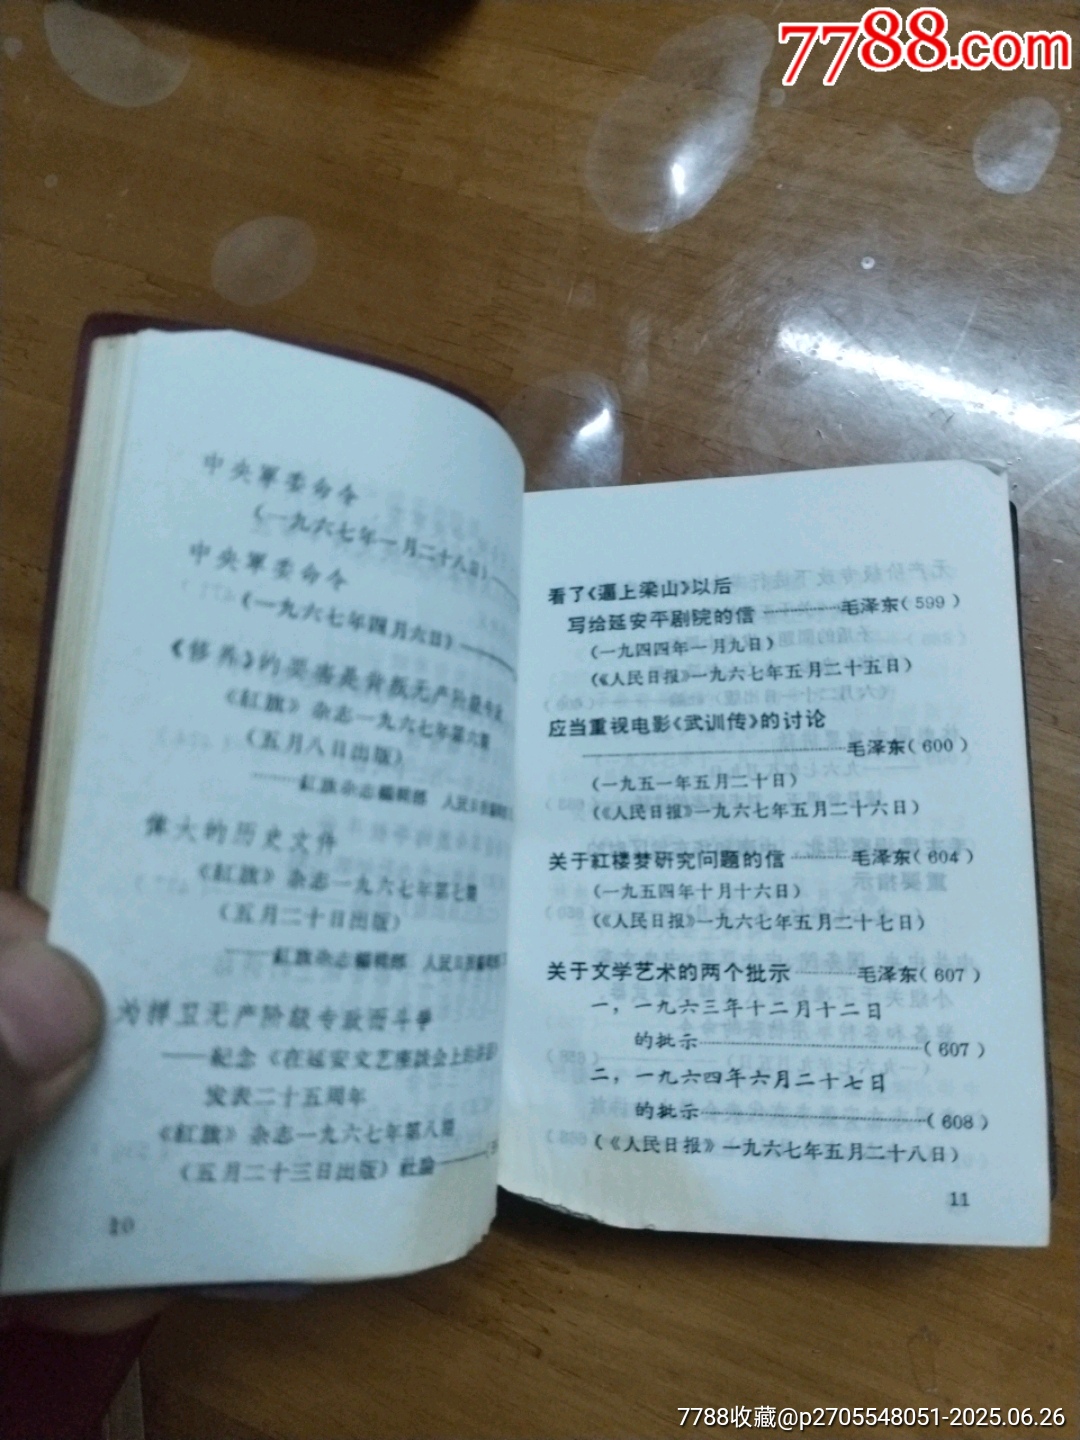 7788.com
中央軍委命令
(一九六七年一月二十八日)
中央軍委命令
(一九六七年四月六日)
《修养》的要害是背叛无产阶級专政
《紅旗》杂志一九六七年第六期
(五月八日出版)
——紅旗杂志編輯部 人民日报編輯
偉大的历史文件
《紅旗》杂志一九六七年第七期
(五月二十日出版)
——紅旗杂志編輯部 人民日报編輯
为捍卫无产阶級专政而斗爭
——紀念《在延安文艺座談会上的讲话》
发表二十五周年
《紅旗》杂志一九六七年第八期
(五月二十三日出版)社論
10
看了《逼上梁山》以后
写给延安平剧院的信 毛泽东(599)
(一九四四年一月九日)
(《人民日报》一九六七年五月二十五日)
应当重视电影《武训传》的讨论
毛泽东(600)
(一九五一年五月二十日)
(《人民日报》一九六七年五月二十六日)
关于紅楼梦研究问题的信 毛泽东(604)
(一九五四年十月十六日)
(《人民日报》一九六七年五月二十七日)
关于文学艺术的两个批示 毛泽东(607)
一，一九六三年十二月十二日
的批示 (607)
二，一九六四年六月二十七日
的批示 (608)
(《人民日报》一九六七年五月二十八日)
11
7788收藏@p2705548051-2025.06.26